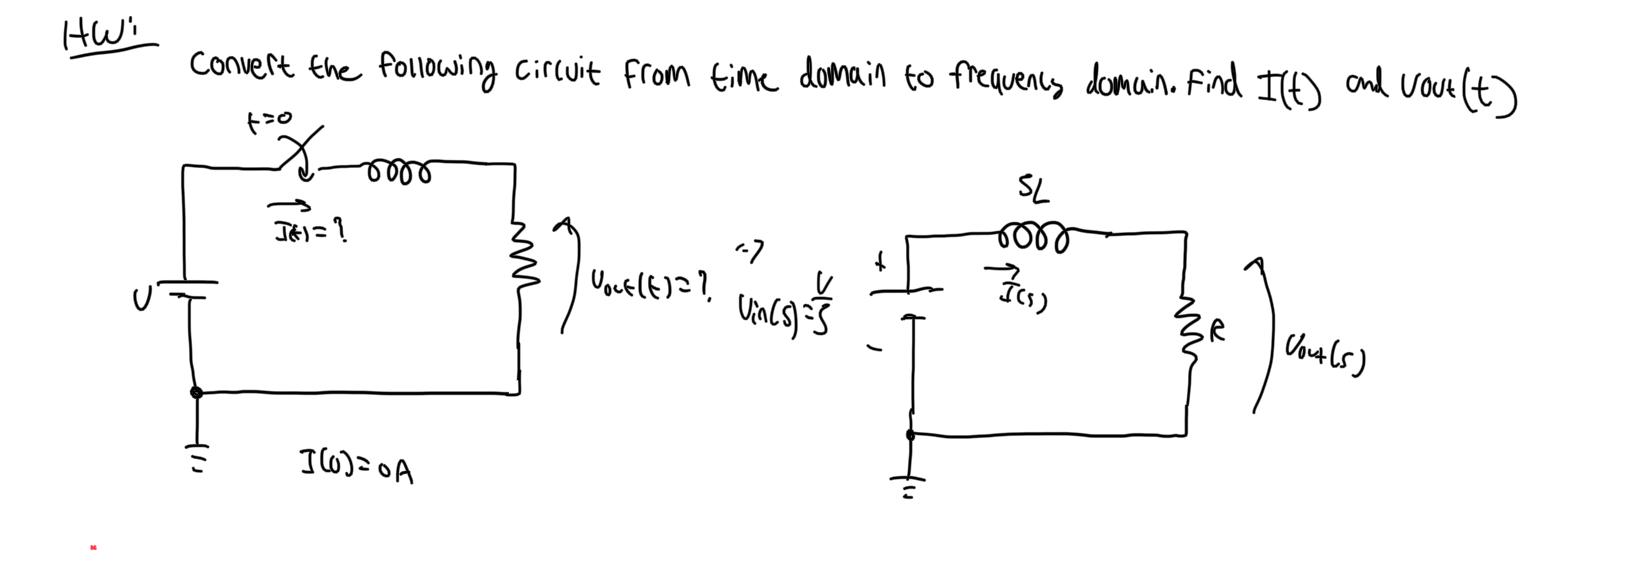 HW:
Convert the following circuit from time domain to frequency domain. Find I(t) and Vout(t)
t=0
I(t)=?
V
Vout(t)=?
I(0)=0A
=>
Vin(s)=V/S
+
-
SL
I(s)
R
Vout(s)